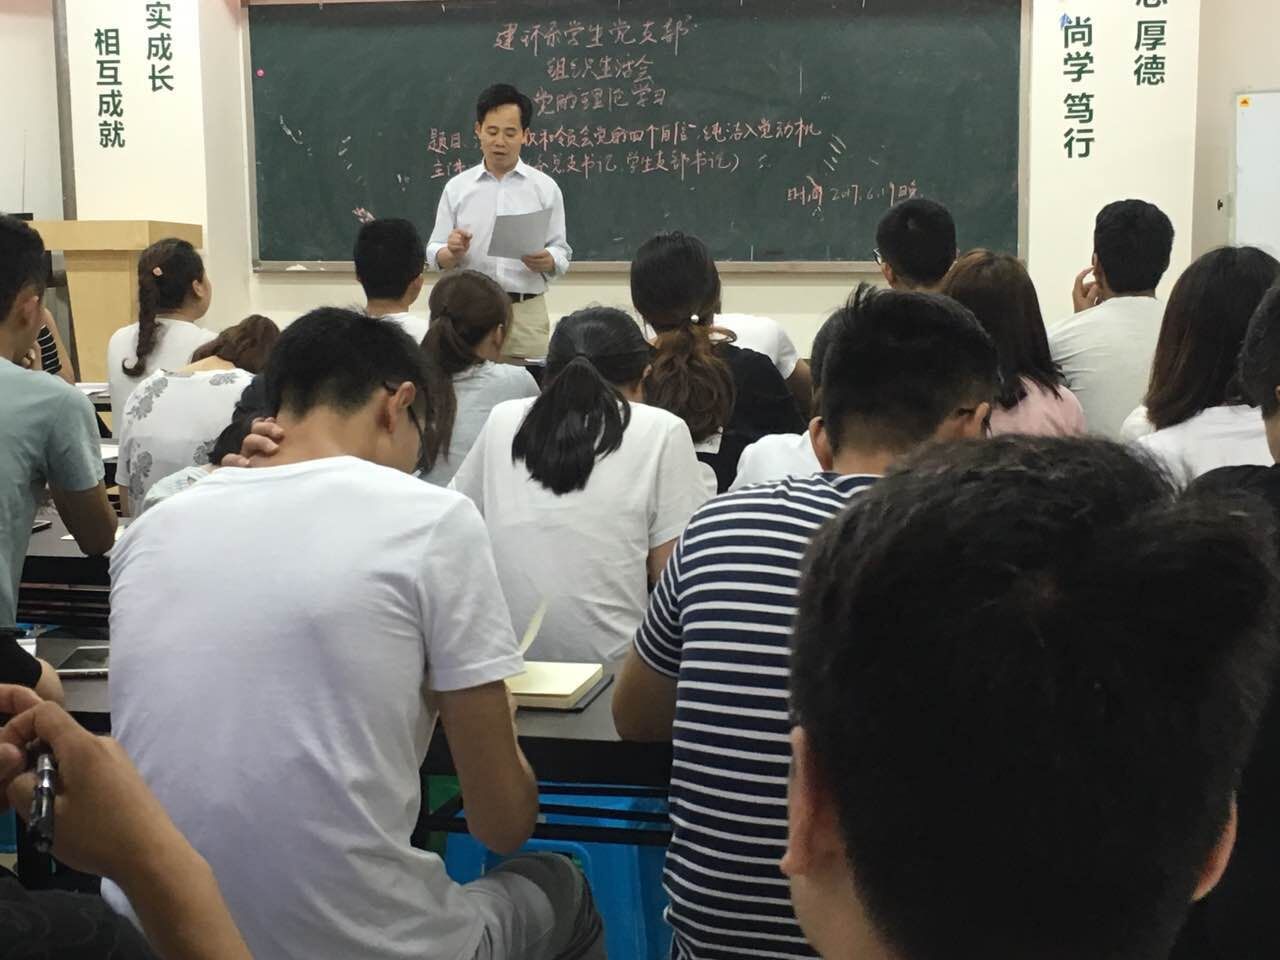 实成长
相互成就
建环系学生党支部
组织生活会
党的理论学习
题目 和领会党的四个自信、纯洁入党动机
主讲 党支书记 学生支部书记)
时间 2017.6.19晚
厚德
尚学笃行